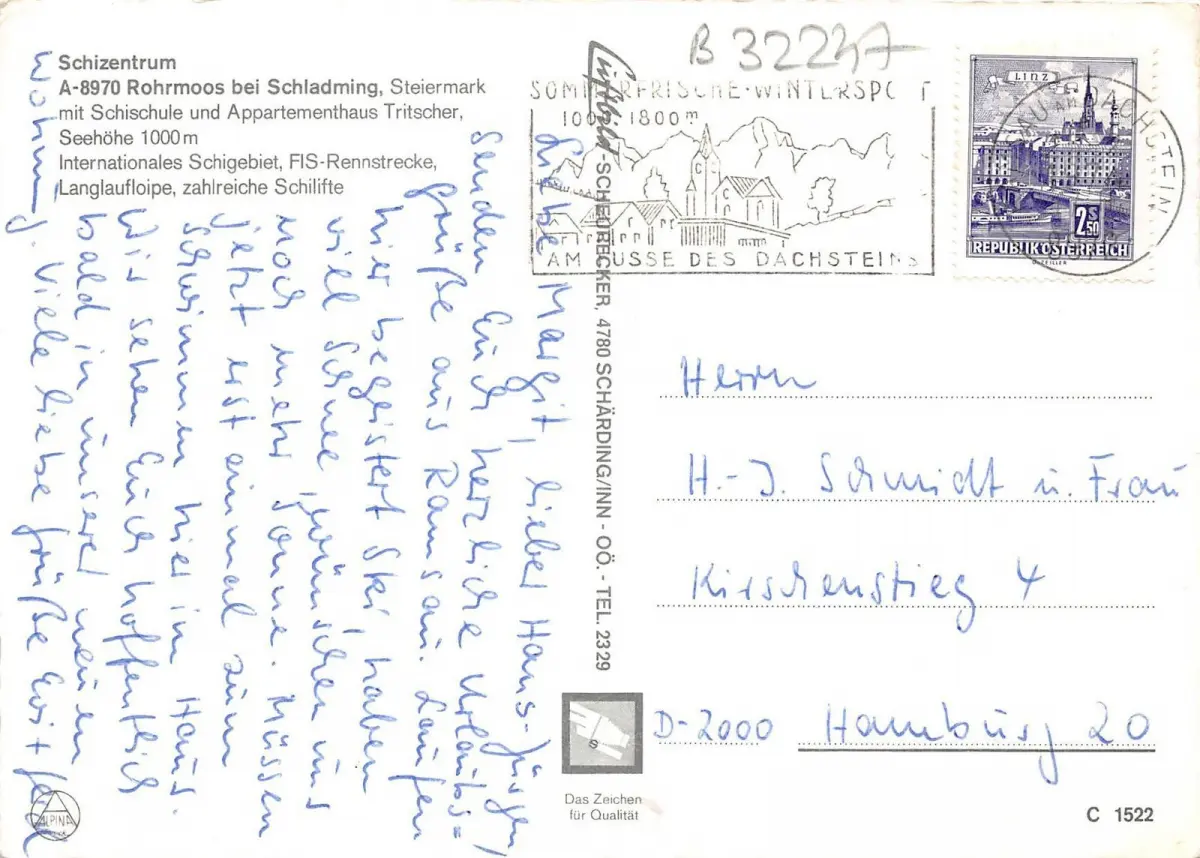 Schizentrum
A-8970 Rohrmoos bei Schladming, Steiermark
mit Schischule und Appartementhaus Tritscher,
Seehöhe 1000 m
Internationales Schigebiet, FIS-Rennstrecke,
Langlaufloipe, zahlreiche Schilifte
Liebe Margit, lieber Hans-Jürgen!
Senden Euch herzliche Urlaubs=
grüße aus Ramsau. Laufen
hier begeistert Ski, haben
viel Schnee, wünschen uns
noch mehr Sonne. Müssen
jetzt erst einmal zum
Schwimmen hier im Haus.
Wir sehen Euch hoffentlich
bald in unserer neuen
Wohnung. Viele liebe Grüße
B 32237
SOMMERFRISCHE-WINTERSPORT
1800 m
AM FUSSE DES DACHSTEINS
AU AM DACHSTEIN
LINZ
2 S 50
REPUBLIK ÖSTERREICH
-SCHEURECKER, 4780 SCHÄRDING/INN - OÖ. - TEL. 2329
Herrn
H.-J. Schmidt u. Frau
Kirschenstieg 4
D-2000 Hamburg 20
Das Zeichen
für Qualität
ALPINA
C 1522